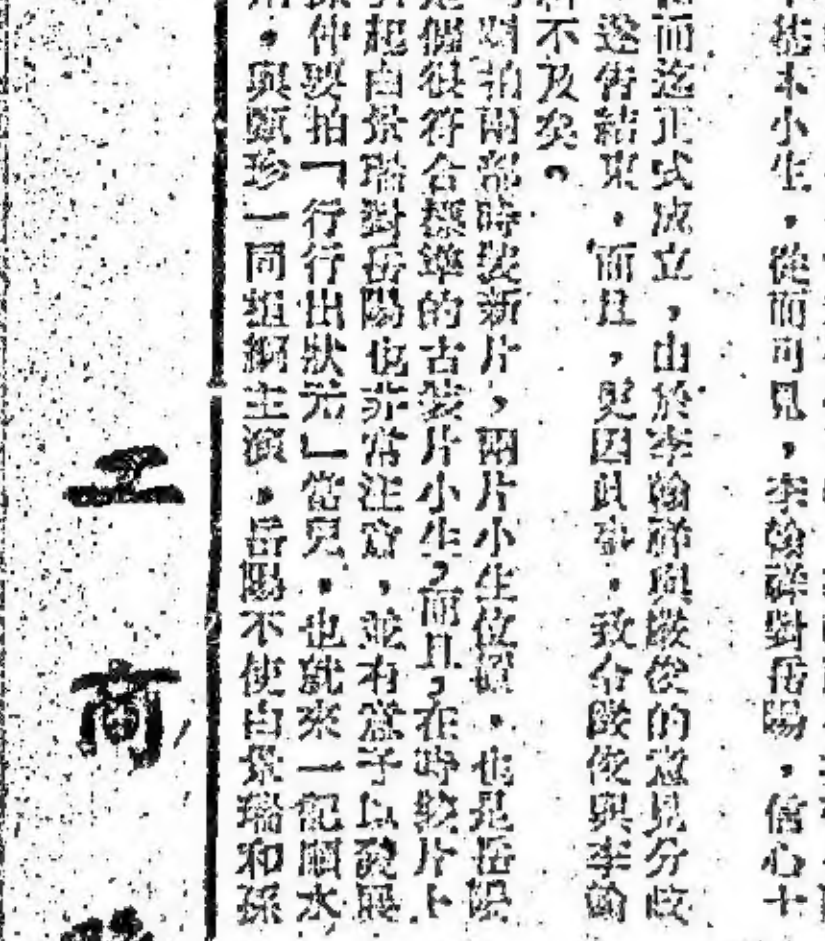 生木小生，從而可見，李翰祥對岳陽，信心十
而迄正式成立，由於李翰祥與嚴俊的意見分歧
遂告結束，而且，更因此事，致令嚴俊與李翰
不及矣。
拍兩部時裝新片，兩片小生位置，也是岳陽
個很符合標準的古裝片小生，而且，在時裝片上
起白景瑞對岳陽也非常注意，並有意予以發展
仲要拍「行行出狀元」當兒，也就來一記順水
，與甄珍一同担綱主演，岳陽不使白景瑞和孫
工商